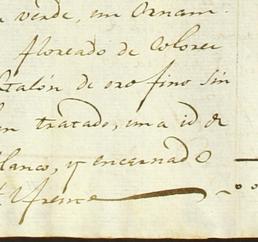 verde, un Ornam.
floreado de Colores
Galón de oro fino sin
tratado, una id de
blanco, y encarnado